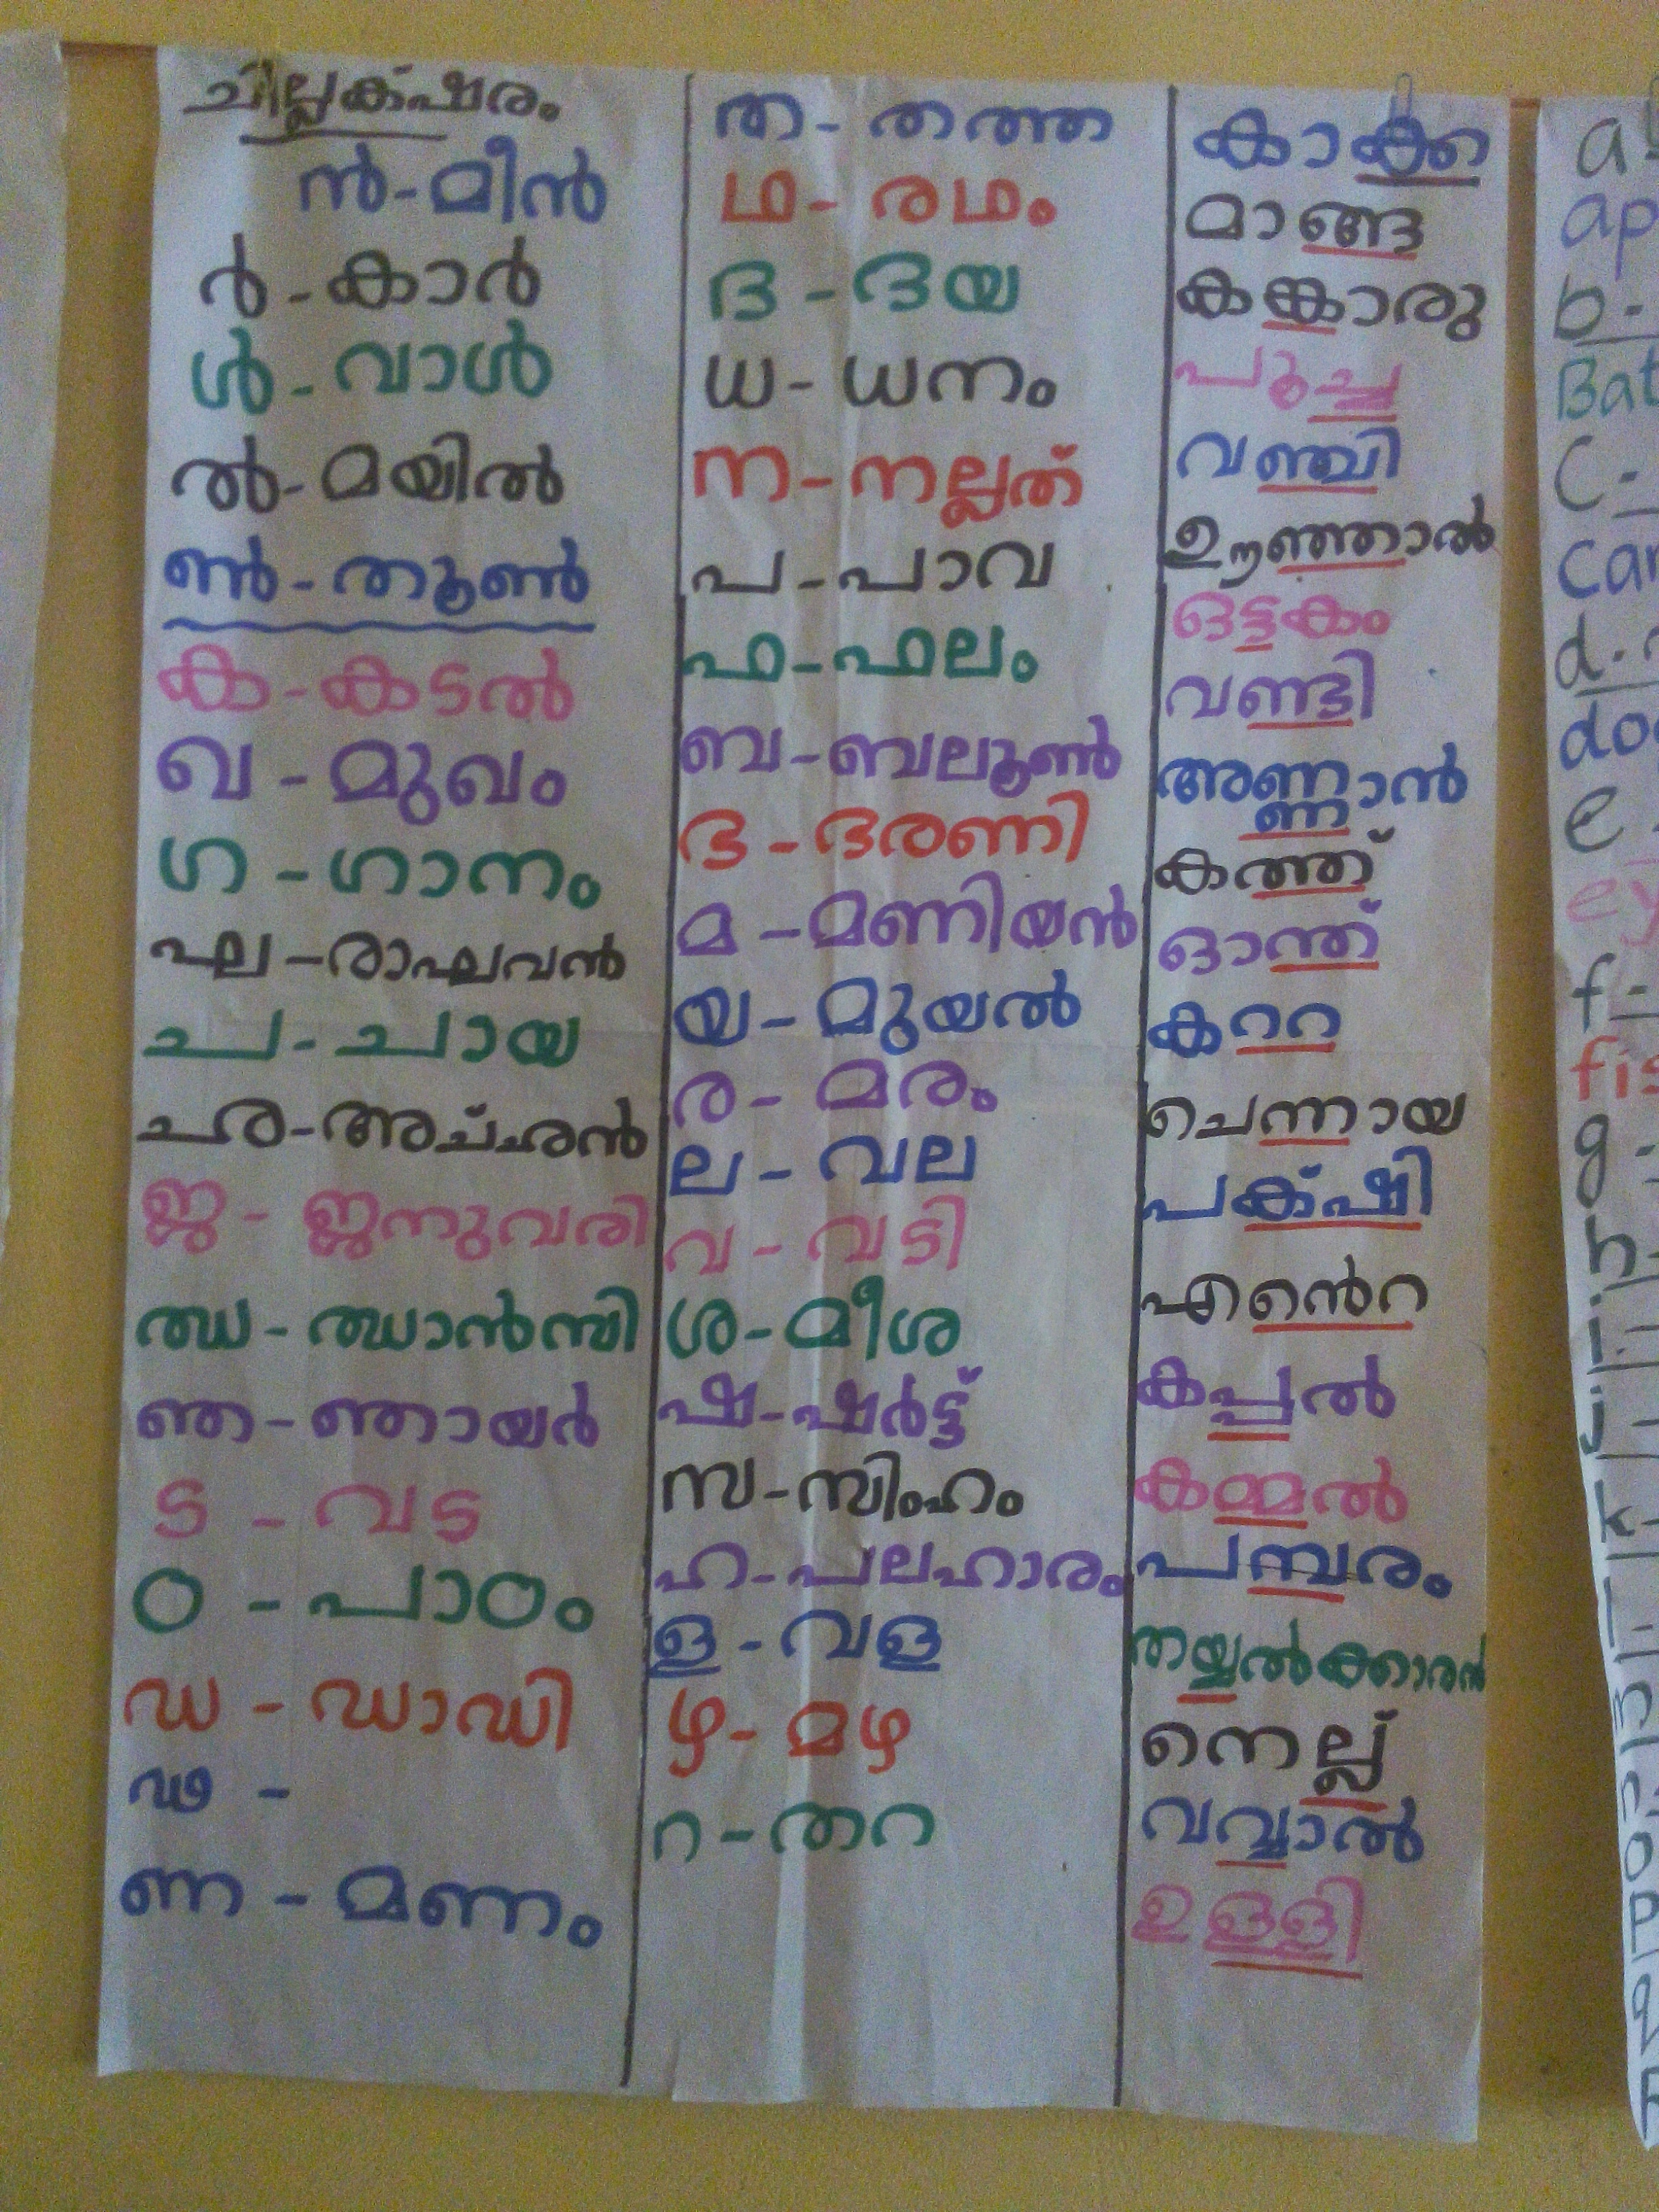 ചില്ലക്ഷരം
ൻ-മീൻ
ർ-കാർ
ൾ-വാൾ
ൽ-മയിൽ
ൺ-തൂൺ
ക-കടൽ
ഖ-മുഖം
ഗ-ഗാനം
ഘ-രാഘവൻ
ച-ചായ
ഛ-അച്ഛൻ
ജ-ജനുവരി
ഝ-ഝാൻസി
ഞ-ഞായർ
ട-വട
ഠ-പാഠം
ഡ-ഡാഡി
ഢ-
ണ-മണം
ത-തത്ത
ഥ-രഥം
ദ-ദയ
ധ-ധനം
ന-നല്ലത്
പ-പാവ
ഫ-ഫലം
ബ-ബലൂൺ
ഭ-ഭരണി
മ-മണിയൻ
യ-മുയൽ
ര-മരം
ല-വല
വ-വടി
ശ-മീശ
ഷ-ഷർട്ട്
സ-സിംഹം
ഹ-പലഹാരം
ള-വള
ഴ-മഴ
റ-തറ
കാക്ക
മാങ്ങ
കങ്കാരു
പൂച്ച
വഞ്ചി
ഊഞ്ഞാൽ
ഒട്ടകം
വണ്ടി
അണ്ണാൻ
കത്ത്
ഓന്ത്
കററ
ചെന്നായ
പക്ഷി
എൻെറ
കപ്പൽ
കമ്മൽ
പമ്പരം
തയ്യൽക്കാരൻ
നെല്ല്
വവ്വാൽ
ഉള്ളി
a
ap
b-
Bat
C-
Car
d-
do
e
ey
f-
fis
g-
h
i
j
k